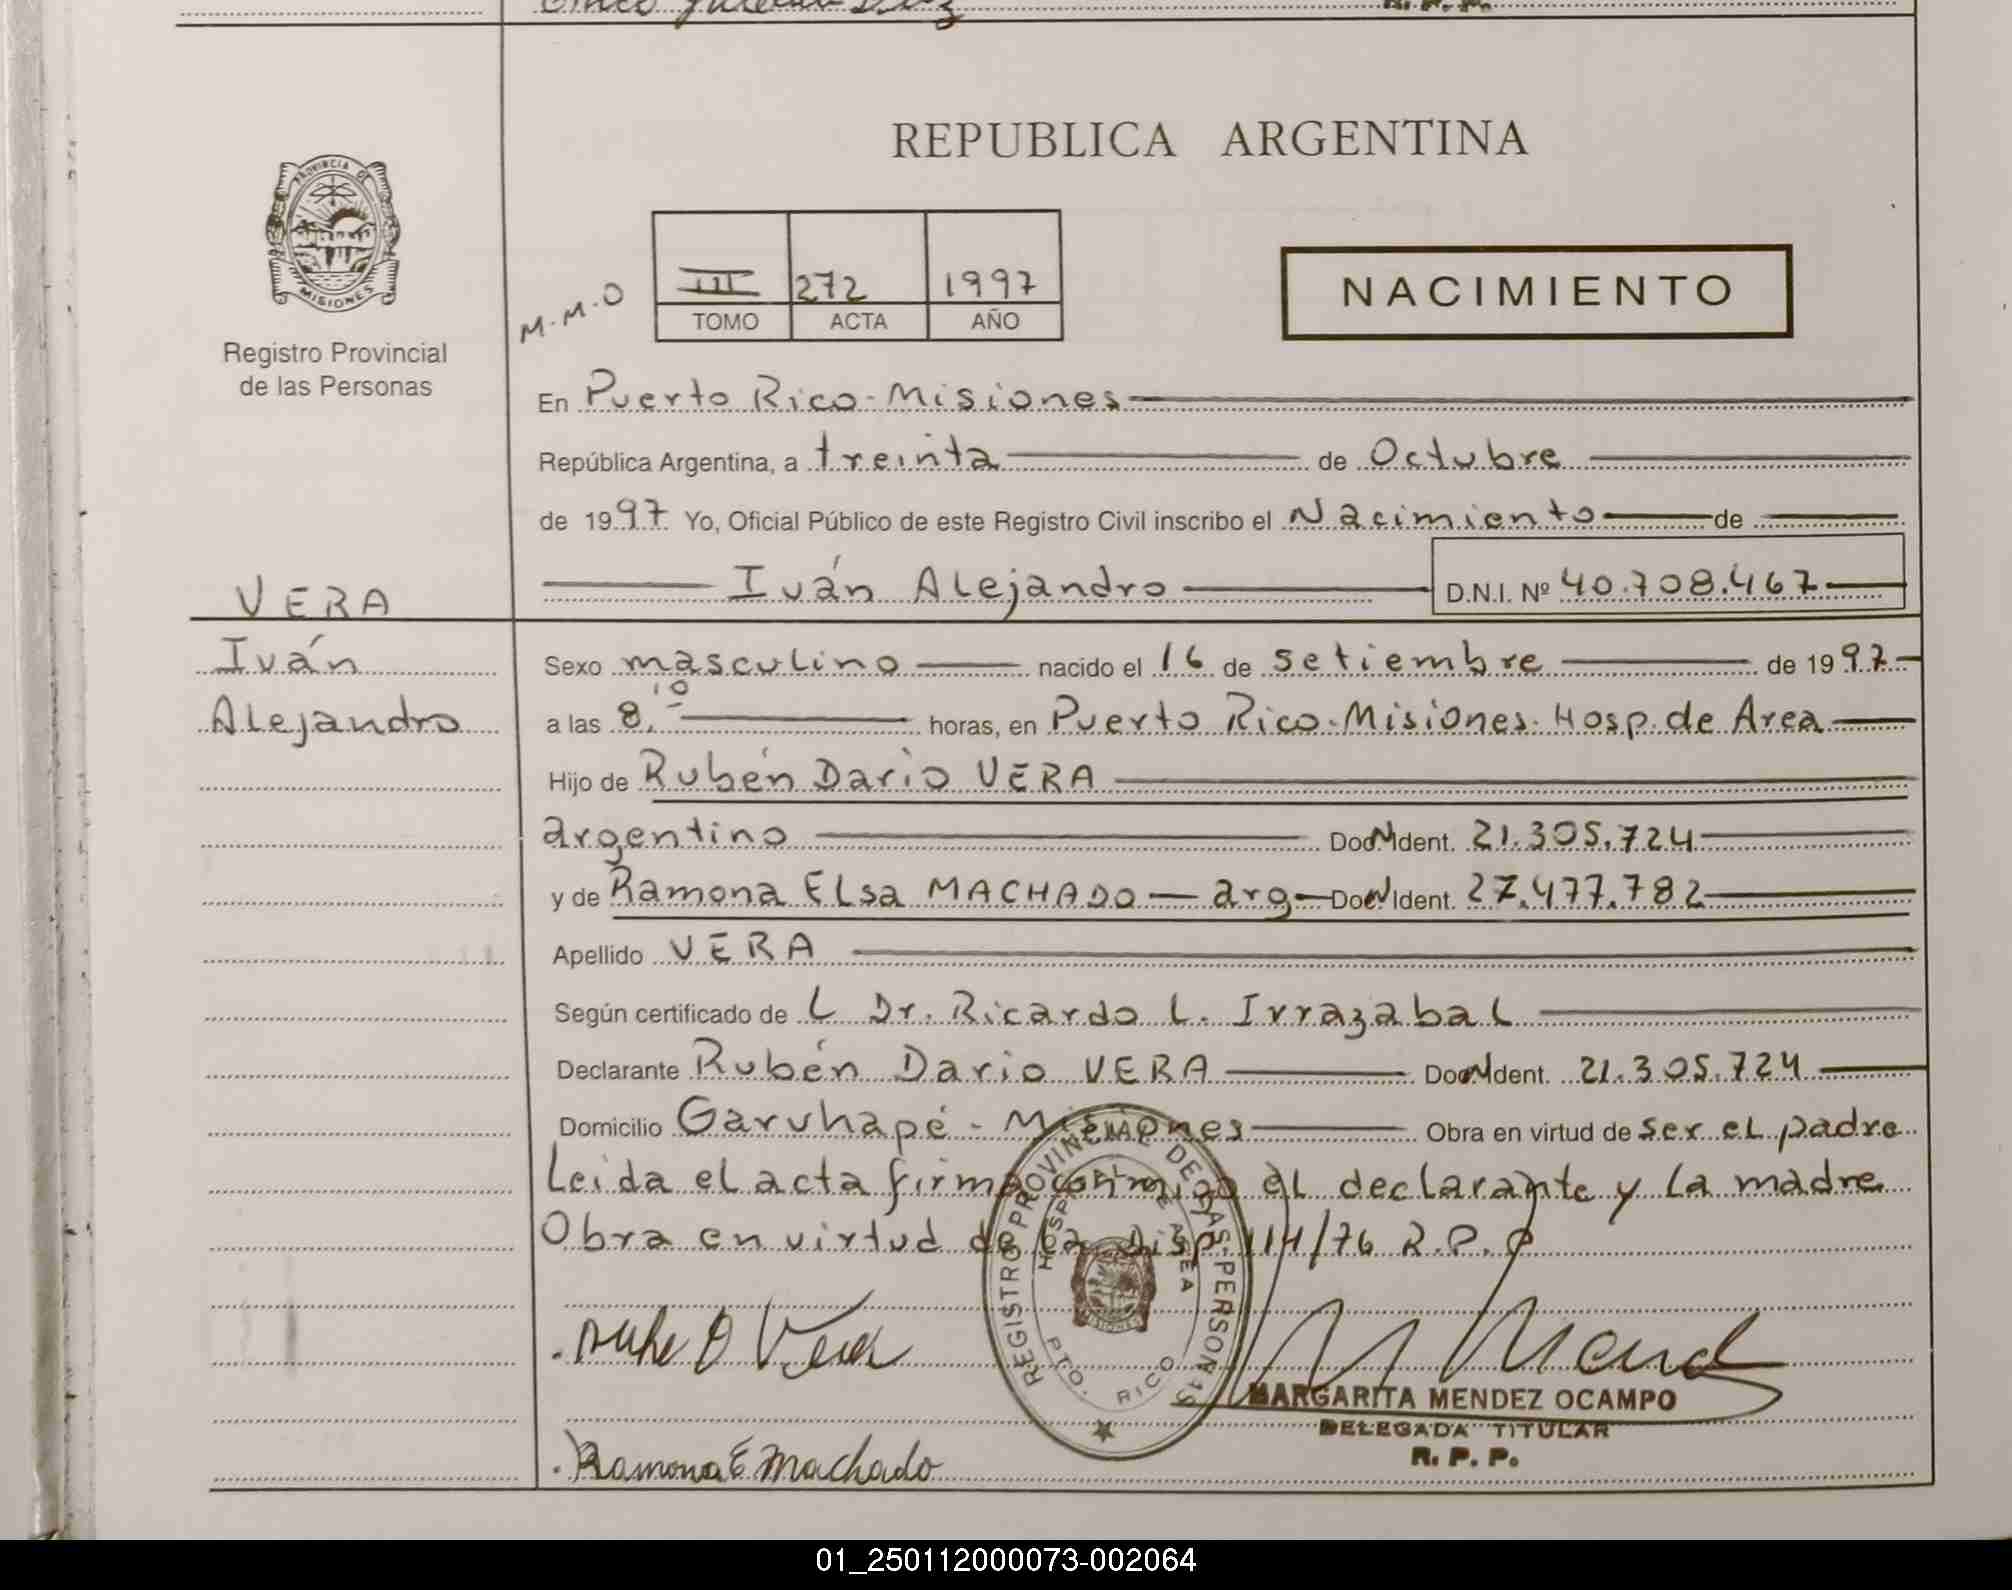 R. P. P.
PROVINCIA DE
MISIONES
Registro Provincial
de las Personas
REPUBLICA ARGENTINA
M.M.O
III 272 1997
TOMO ACTA AÑO
NACIMIENTO
En Puerto Rico-Misiones
República Argentina, a treinta de Octubre
de 1997 Yo, Oficial Público de este Registro Civil inscribo el Nacimiento de
Iván Alejandro D.N.I. Nº 40.708.467
VERA
Iván
Alejandro
Sexo masculino nacido el 16 de setiembre de 1997
a las 8.10 horas, en Puerto Rico-Misiones. Hosp. de Area
Hijo de Rubén Dario VERA
argentino Doc N Ident. 21.305.724
y de Ramona Elsa MACHADO — arg — Doc N Ident. 27.477.782
Apellido VERA
Según certificado de L Dr. Ricardo L. Irrazabal
Declarante Rubén Dario VERA Doc N Ident. 21.305.724
Domicilio Garuhapé - Misiones Obra en virtud de ser el padre
Leida el acta firma conmigo el declarante y la madre
Obra en virtud de la Disp 114/76 R.P.P
REGISTRO PROVINCIAL DE LAS PERSONAS
HOSPITAL DE AREA
PTO. RICO
MARGARITA MENDEZ OCAMPO
DELEGADA TITULAR
R. P. P.
Ramona E Machado
01_250112000073-002064